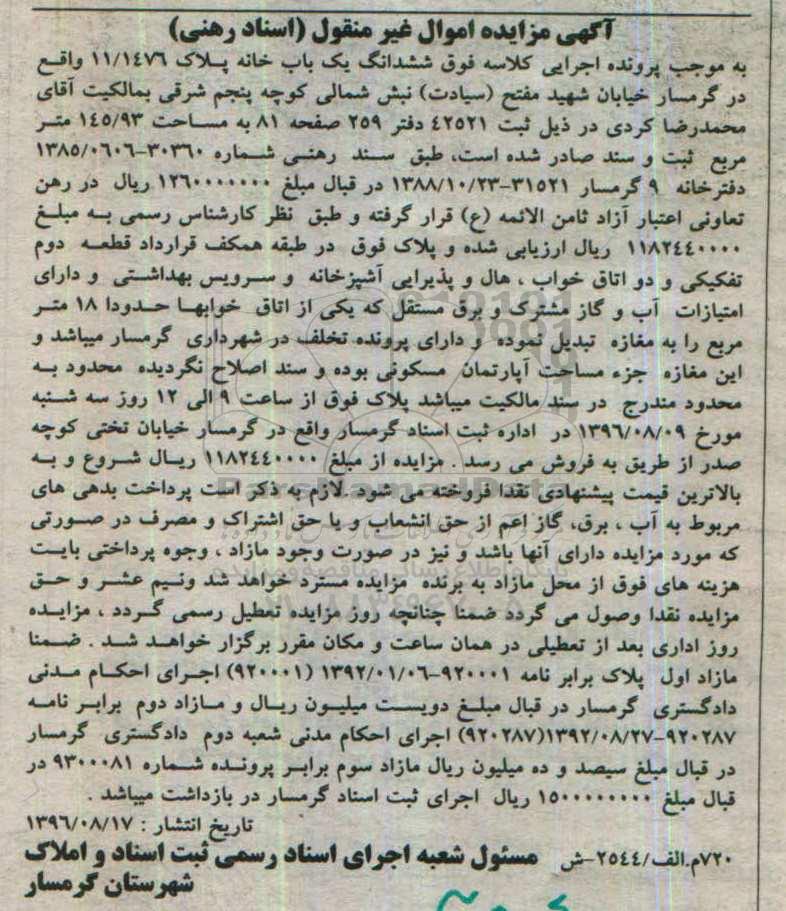 آگهی مزایده اموال غیر منقول (اسناد رهنی)
به موجب پرونده اجرایی کلاسه فوق ششدانگ یک باب خانه پلاک ۱۱/۱٤۷٦ واقع
در گرمسار خیابان شهید مفتح (سیادت) نبش شمالی کوچه پنجم شرقی بمالکیت آقای
محمدرضا کردی در ذیل ثبت ٤۲٥۲۱ دفتر ۲٥۹ صفحه ۸۱ به مساحت ۱٤٥/۹۳ متر
مربع ثبت و سند صادر شده است، طبق سند رهنی شماره ۳۰۳٦۰-۱۳۸٥/۰٦۰٦
دفترخانه ۹ گرمسار ۳۱٥۲۱-۱۳۸۸/۱۰/۲۳ در قبال مبلغ ۱۲٦۰۰۰۰۰۰۰ ریال در رهن
تعاونی اعتبار آزاد ثامن الائمه (ع) قرار گرفته و طبق نظر کارشناس رسمی به مبلغ
۱۱۸۲٤٤۰۰۰۰ ریال ارزیابی شده و پلاک فوق در طبقه همکف قرارداد قطعه دوم
تفکیکی و دو اتاق خواب ، هال و پذیرایی آشپزخانه و سرویس بهداشتی و دارای
امتیازات آب و گاز مشترک و برق مستقل که یکی از اتاق خوابها حدودا ۱۸ متر
مربع را به مغازه تبدیل نموده و دارای پرونده تخلف در شهرداری گرمسار میباشد و
این مغازه جزء مساحت آپارتمان مسکونی بوده و سند اصلاح نگردیده محدود به
محدود مندرج در سند مالکیت میباشد پلاک فوق از ساعت ۹ الی ۱۲ روز سه شنبه
مورخ ۱۳۹٦/۰۸/۰۹ در اداره ثبت اسناد گرمسار واقع در گرمسار خیابان تختی کوچه
صدر از طریق به فروش می رسد . مزایده از مبلغ ۱۱۸۲٤٤۰۰۰۰ ریال شروع و به
بالاترین قیمت پیشنهادی نقدا فروخته می شود .لازم به ذکر است پرداخت بدهی های
مربوط به آب ، برق، گاز اعم از حق انشعاب و یا حق اشتراک و مصرف در صورتی
که مورد مزایده دارای آنها باشد و نیز در صورت وجود مازاد ، وجوه پرداختی بابت
هزینه های فوق از محل مازاد به برنده مزایده مسترد خواهد شد ونیم عشر و حق
مزایده نقدا وصول می گردد ضمنا چنانچه روز مزایده تعطیل رسمی گردد ، مزایده
روز اداری بعد از تعطیلی در همان ساعت و مکان مقرر برگزار خواهد شد . ضمنا
مازاد اول پلاک برابر نامه ۹۲۰۰۰۱-۱۳۹۲/۰۱/۰٦ (۹۲۰۰۰۱) اجرای احکام مدنی
دادگستری گرمسار در قبال مبلغ دویست میلیون ریال و مازاد دوم برابر نامه
۹۲۰۲۸۷-۱۳۹۲/۰۸/۲۷(۹۲۰۲۸۷) اجرای احکام مدنی شعبه دوم دادگستری گرمسار
در قبال مبلغ سیصد و ده میلیون ریال مازاد سوم برابر پرونده شماره ۹۳۰۰۰۸۱ در
قبال مبلغ ۱٥۰۰۰۰۰۰۰۰ ریال اجرای ثبت اسناد گرمسار در بازداشت میباشد .
تاریخ انتشار : ۱۳۹٦/۰۸/۱۷
۷۲۰م.الف/۲٥٤٤-ش مسئول شعبه اجرای اسناد رسمی ثبت اسناد و املاک
شهرستان گرمسار
ParsNamadData